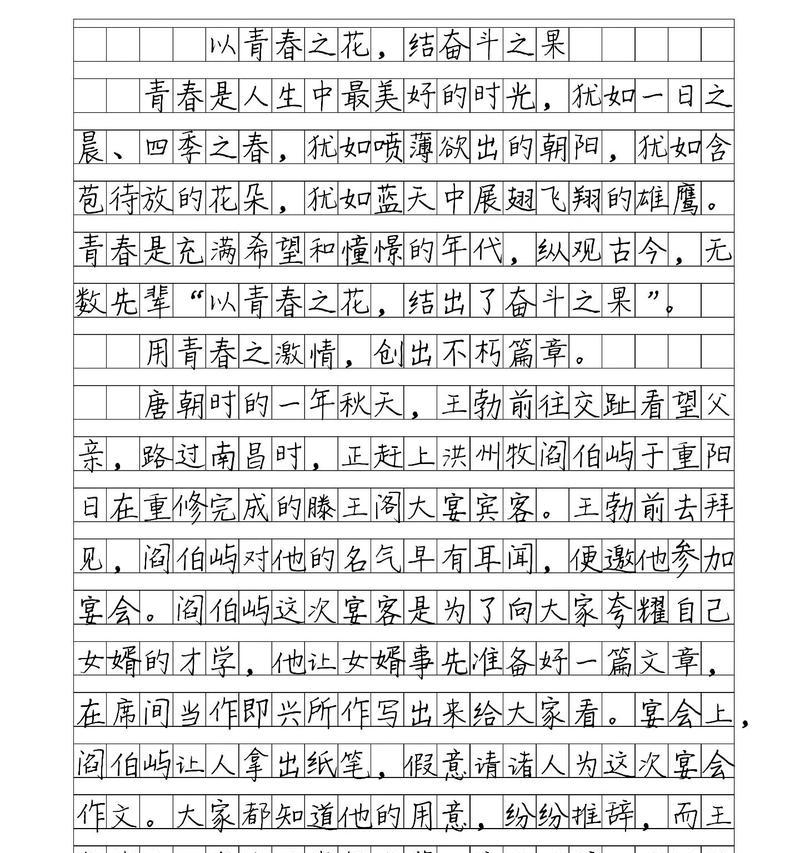 以青春之花，结奋斗之果
青春是人生中最美好的时光，犹如一日之
晨、四季之春，犹如喷薄欲出的朝阳，犹如含
苞待放的花朵，犹如蓝天中展翅飞翔的雄鹰。
青春是充满希望和憧憬的年代，纵观古今，无
数先辈“以青春之花，结出了奋斗之果”。
用青春之激情，创出不朽篇章。
唐朝时的一年秋天，王勃前往交趾看望父
亲，路过南昌时，正赶上洪州牧阎伯屿于重阳
日在重修完成的滕王阁大宴宾客。王勃前去拜
见，阎伯屿对他的名气早有耳闻，便邀他参加
宴会。阎伯屿这次宴客是为了向大家夸耀自己
女婿的才学，他让女婿事先准备好一篇文章，
在席间当作即兴所作写出来给大家看。宴会上，
阎伯屿让人拿出纸笔，假意请诸人为这次宴会
作文。大家都知道他的用意，纷纷推辞，而王